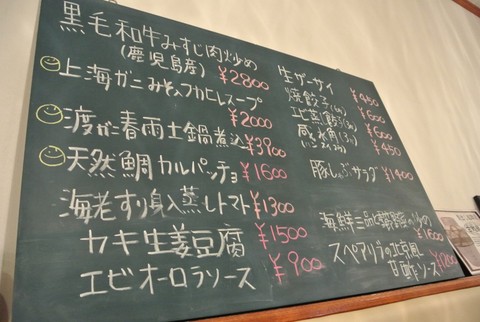 黒毛和牛みすじ肉炒め
(鹿児島産) ¥2800
上海ガニみそ入フカヒレスープ
¥2000
渡りガニ春雨土鍋煮込 ¥3900
天然鯛カルパッチョ ¥1600
海老すり身入蒸しトマト ¥1300
カキ生姜豆腐 ¥1500
エビオーロラソース ¥900
生ザーサイ ¥450
焼餃子 ¥600
エビ蒸餃子 ¥600
咸水角 ¥450
豚しゃぶサラダ ¥1400
海鮮三品 ¥1600
スペアリブの北京風
甘酢ソース